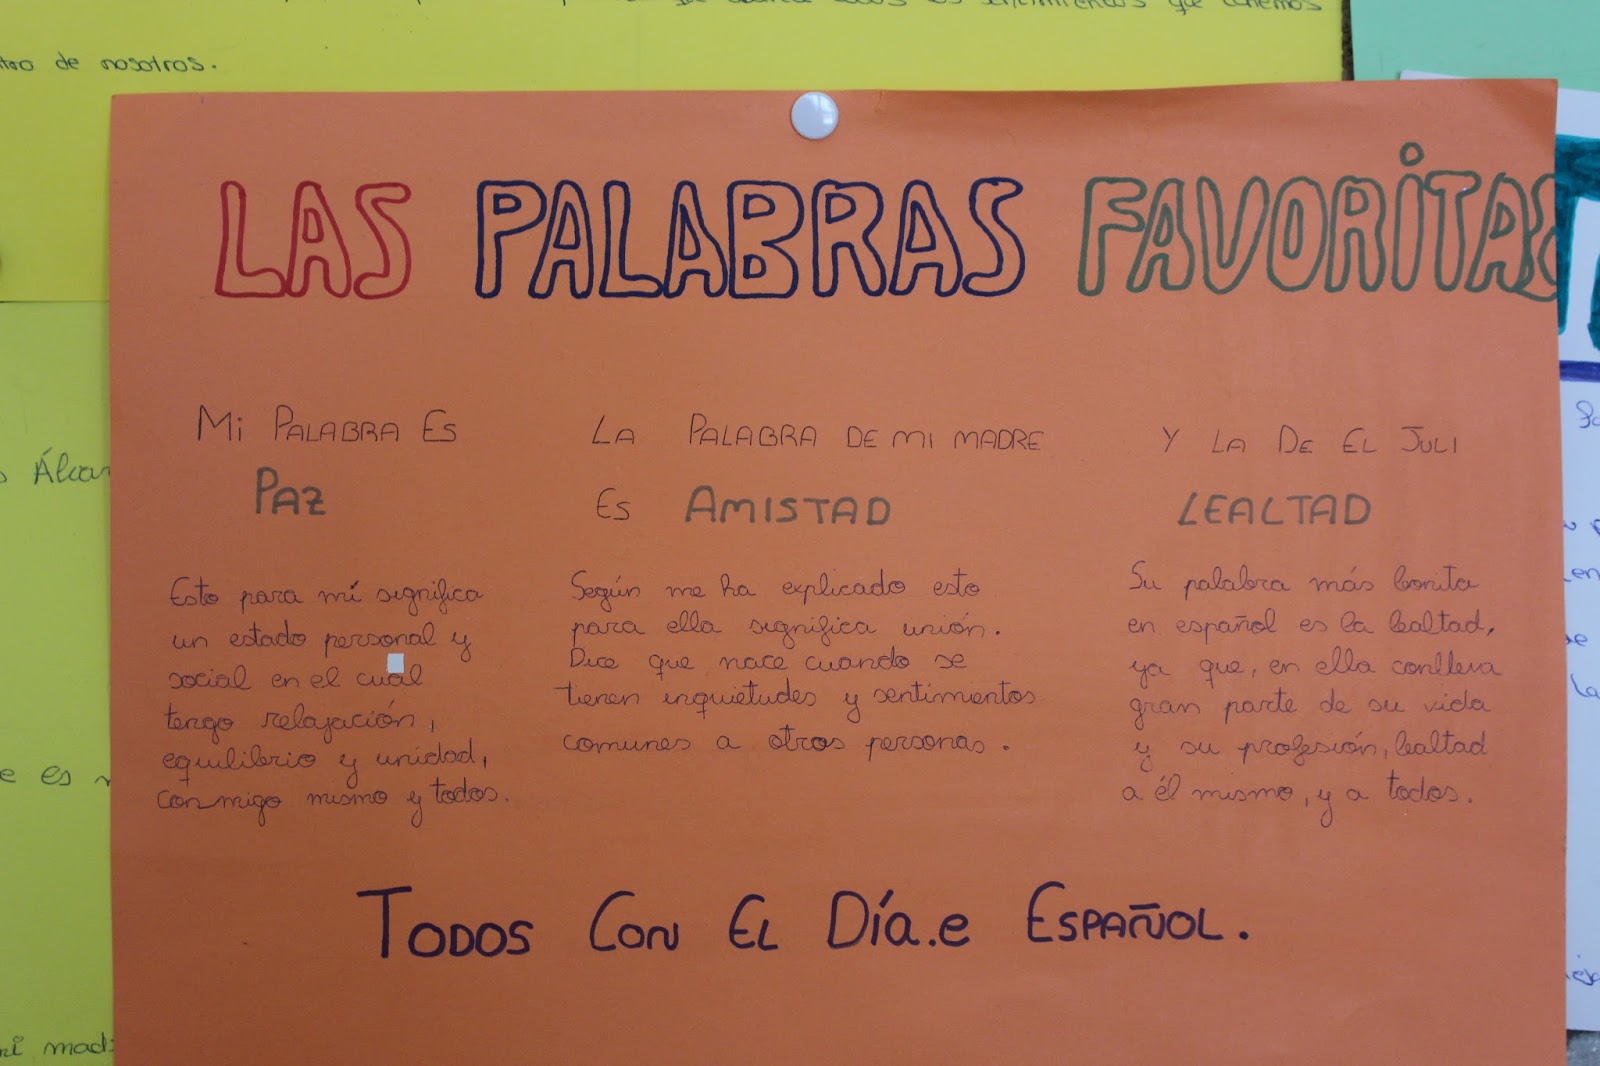 sentimientos que tenemos
de nosotros.
LAS PALABRAS FAVORITAS
Mi PALABRA ES
PAZ
Esto para mí significa
un estado personal y
social en el cual
tengo relajación,
equilibrio y unidad,
conmigo mismo y todos.
LA PALABRA DE MI MADRE
ES AMISTAD
Según me ha explicado esto
para ella significa unión.
Dice que nace cuando se
tienen inquietudes y sentimientos
comunes a otras personas.
Y LA DE EL JULI
LEALTAD
Su palabra más bonita
en español es la lealtad,
ya que, en ella conlleva
gran parte de su vida
y su profesión, lealtad
a él mismo, y a todos.
TODOS CON EL Día.e ESPAÑOL.
e es